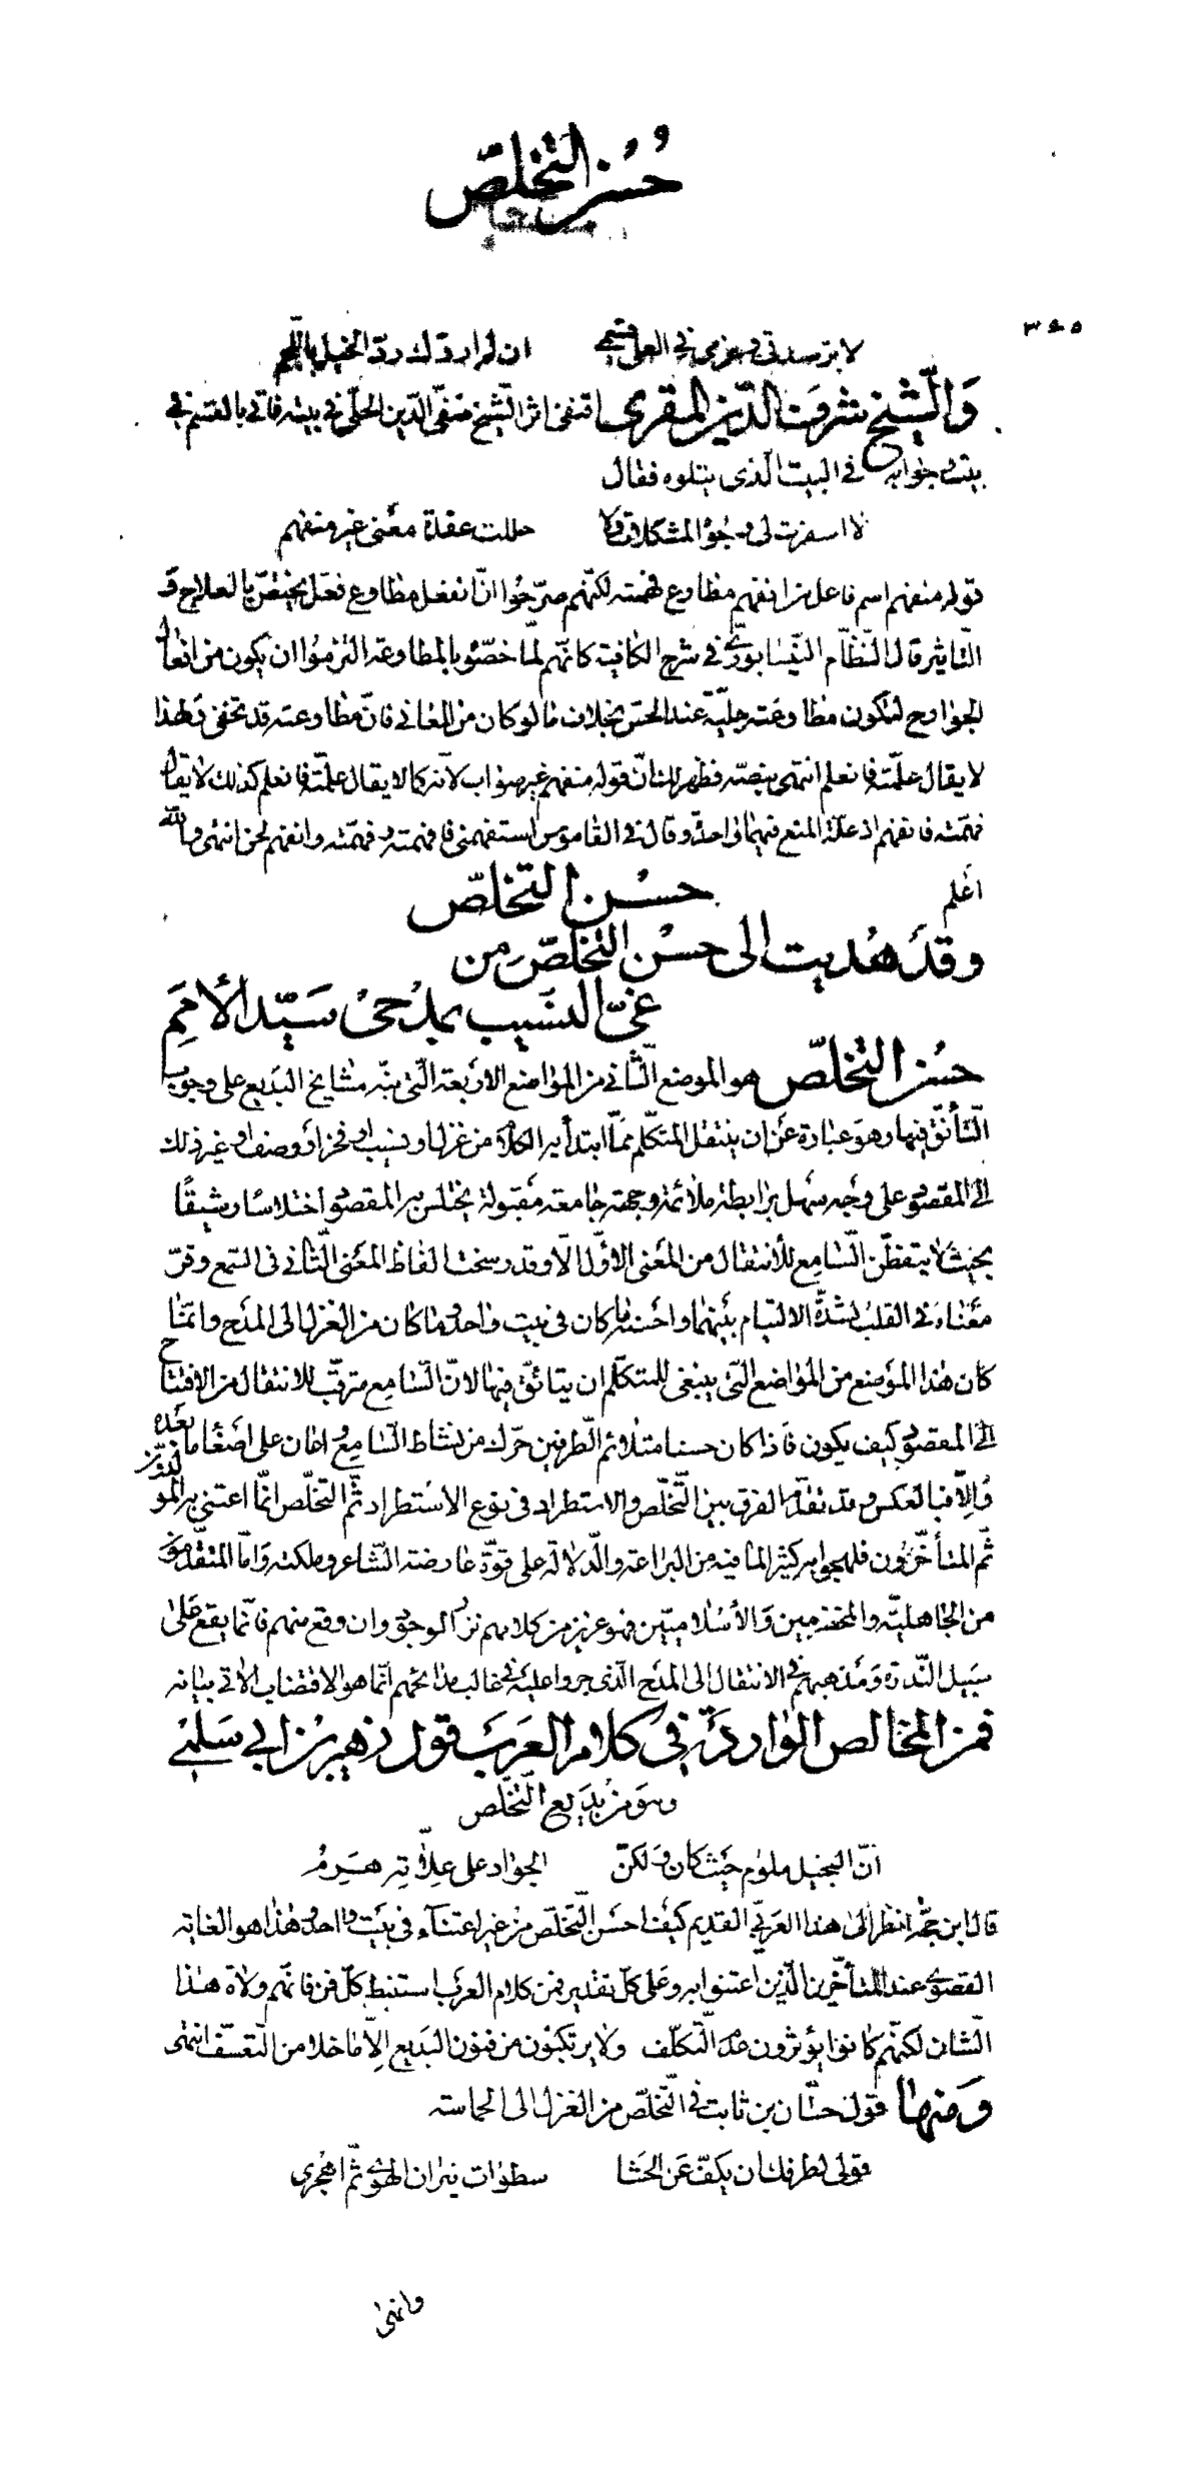 حُسْنُ التَّخَلُّصِ
٣٤٥
لا بر سيدتى وعزمى فى العلى قسمى ان لم اردّك ردّ الخيل باللجم
وَالشّيخ شرف الدّين المقرى اقتفى اثر الشّيخ صفىّ الدّين الحلّى فى بيته فاتى بالقسم فى
بيت وجوابه فى البيت الّذى يتلوه فقال
لا اسفرت لى وجوُه المشكلات ولا حللت عقدة معنى غير منفهم
قوله منفهم اسم فاعل من انفهم مطاوع فهمته لكنّهم صرّحُوا انّ انفعل مطاوع فعّل يختصّ بالعلاج و
التّاثير قال النّظّام النّيسابورىّ فى شرح الكافية كانّهم لمّا خصّوُه بالمطاوعة التزموُا ان يكون من افعال
الجوارح لتكون مطاوعته جليّة عند الحسّ بخلاف ما لو كان من المعانى فانّ مطاوعته قد تخفى فلهذا
لا يقال علّمته فانعلم انتهى بنصّه فظهر لك انّ قوله منفهم غير صواب لانّه كما لا يقال علّمته فانعلم كذلك لا يقال
فهّمته فانفهم اذ علّة المنع فيهما واحدة وقال فى القاموس استفهمنى فافهمته وفهّمته وانفهم لحن انتهى والله
اعلم
حسْن التّخلّص
وقدْ هُديت الى حسْن التّخلّص من
غىّ النسَيب بمدْحىْ سَيّد الأمَمِ
حسُن التّخلّص هو الموضع الثّانى من المواضع الاربعة الّتى نبّه مشايخ البَديع على وجوب
التّأنّق فيها وهوَ عبَارة عَن ان ينتقل المتكلّم ممّا ابتدأ به الكلام من غزل او نسَيب او فخر او وصف او غير ذلك
الى المقصود على وجه سَهل برابطة ملائمة وجهة جامعة مقبولة يختلس به المقصود اختلاسًا رشيقًا
بحيث لا يتفطّن السّامع للأنتقال من المعَنى الاوّل الّا وقد رسخت الفاظ المعَنى الثّانى فى السّمع وقرّ
معَناه فى القلب لشدّة الالتيام بينهما واحسَنه ما كان فى بيت واحد وما كان من الغزل الى المدَح وانّما
كان هذا الموَضع من المواضع الّتى ينبغى للمتكلّم ان يتانّق فيها لانّ السّامع مترقّب للانتقال من الافتتاح
الى المقصود كيف يكون فاذا كان حسنا متلائم الطّرفين حرّك من نشاط السّامع واعان على اصَغاء ما بعَده
وَالّا فبالعكس وقد تقدّم الفرق بين التّخلّص والاستطراد فى نوع الاسْتطراد ثمّ التخلّص انّما اعتنى به المولّدون
ثمّ المتأخّرون فلهجوا به كثيرا لما فيه من البراعة والدّلالة على قوّة عارضة الشّاعر وملكته وَامّا المتقدّمون
من الجاهليّة والمخضرمين وَالأسْلاميّين فهو عزيز من كلامهم نزر الوجود وان وقع منهم فانّما يقع على
سَبيل النّدرة ومَذهبهم فى الانتقال الى المدَح الّذى جروا عليه فى غالب مدائحهم انّما هو الاقتضاب الاتى بيَانه
فمن المخالص الواردَة فى كلام العَرَب قول زهير بن ابى سَلمىْ
وهوَ من بَديع التّخلّص
انّ البخيل ملوم حيَث كان وَلكنّ الجواد على عِلّاتِه هَرِمُ
قال ابن حجّة انظر الى هذا العَربىّ القديم كيَف احسَن التّخلّص من غير اعتنآء فى بيَت واحد وهذا هو الغاية
القصوى عند المتأخّرين الّذين اعتنوا به وعَلى كلّ تقدير فمن كلام العرَب استنبط كلّ فن فانّهم ولاة هذا
الشّان لكنّهم كانوا يؤثرون عدَم التّكلّف ولا يرتكبوُن من فنون البَديع الّا ما خلا من التّعسّف انتهى
وَمنها قول حسّان بن ثابت فى التّخلّص من الغزل الى الحماسة
قولى لطرفك ان يكفّ عَن الحَشا سطوات نيران الهوى ثمّ اهْجرى
وانهى